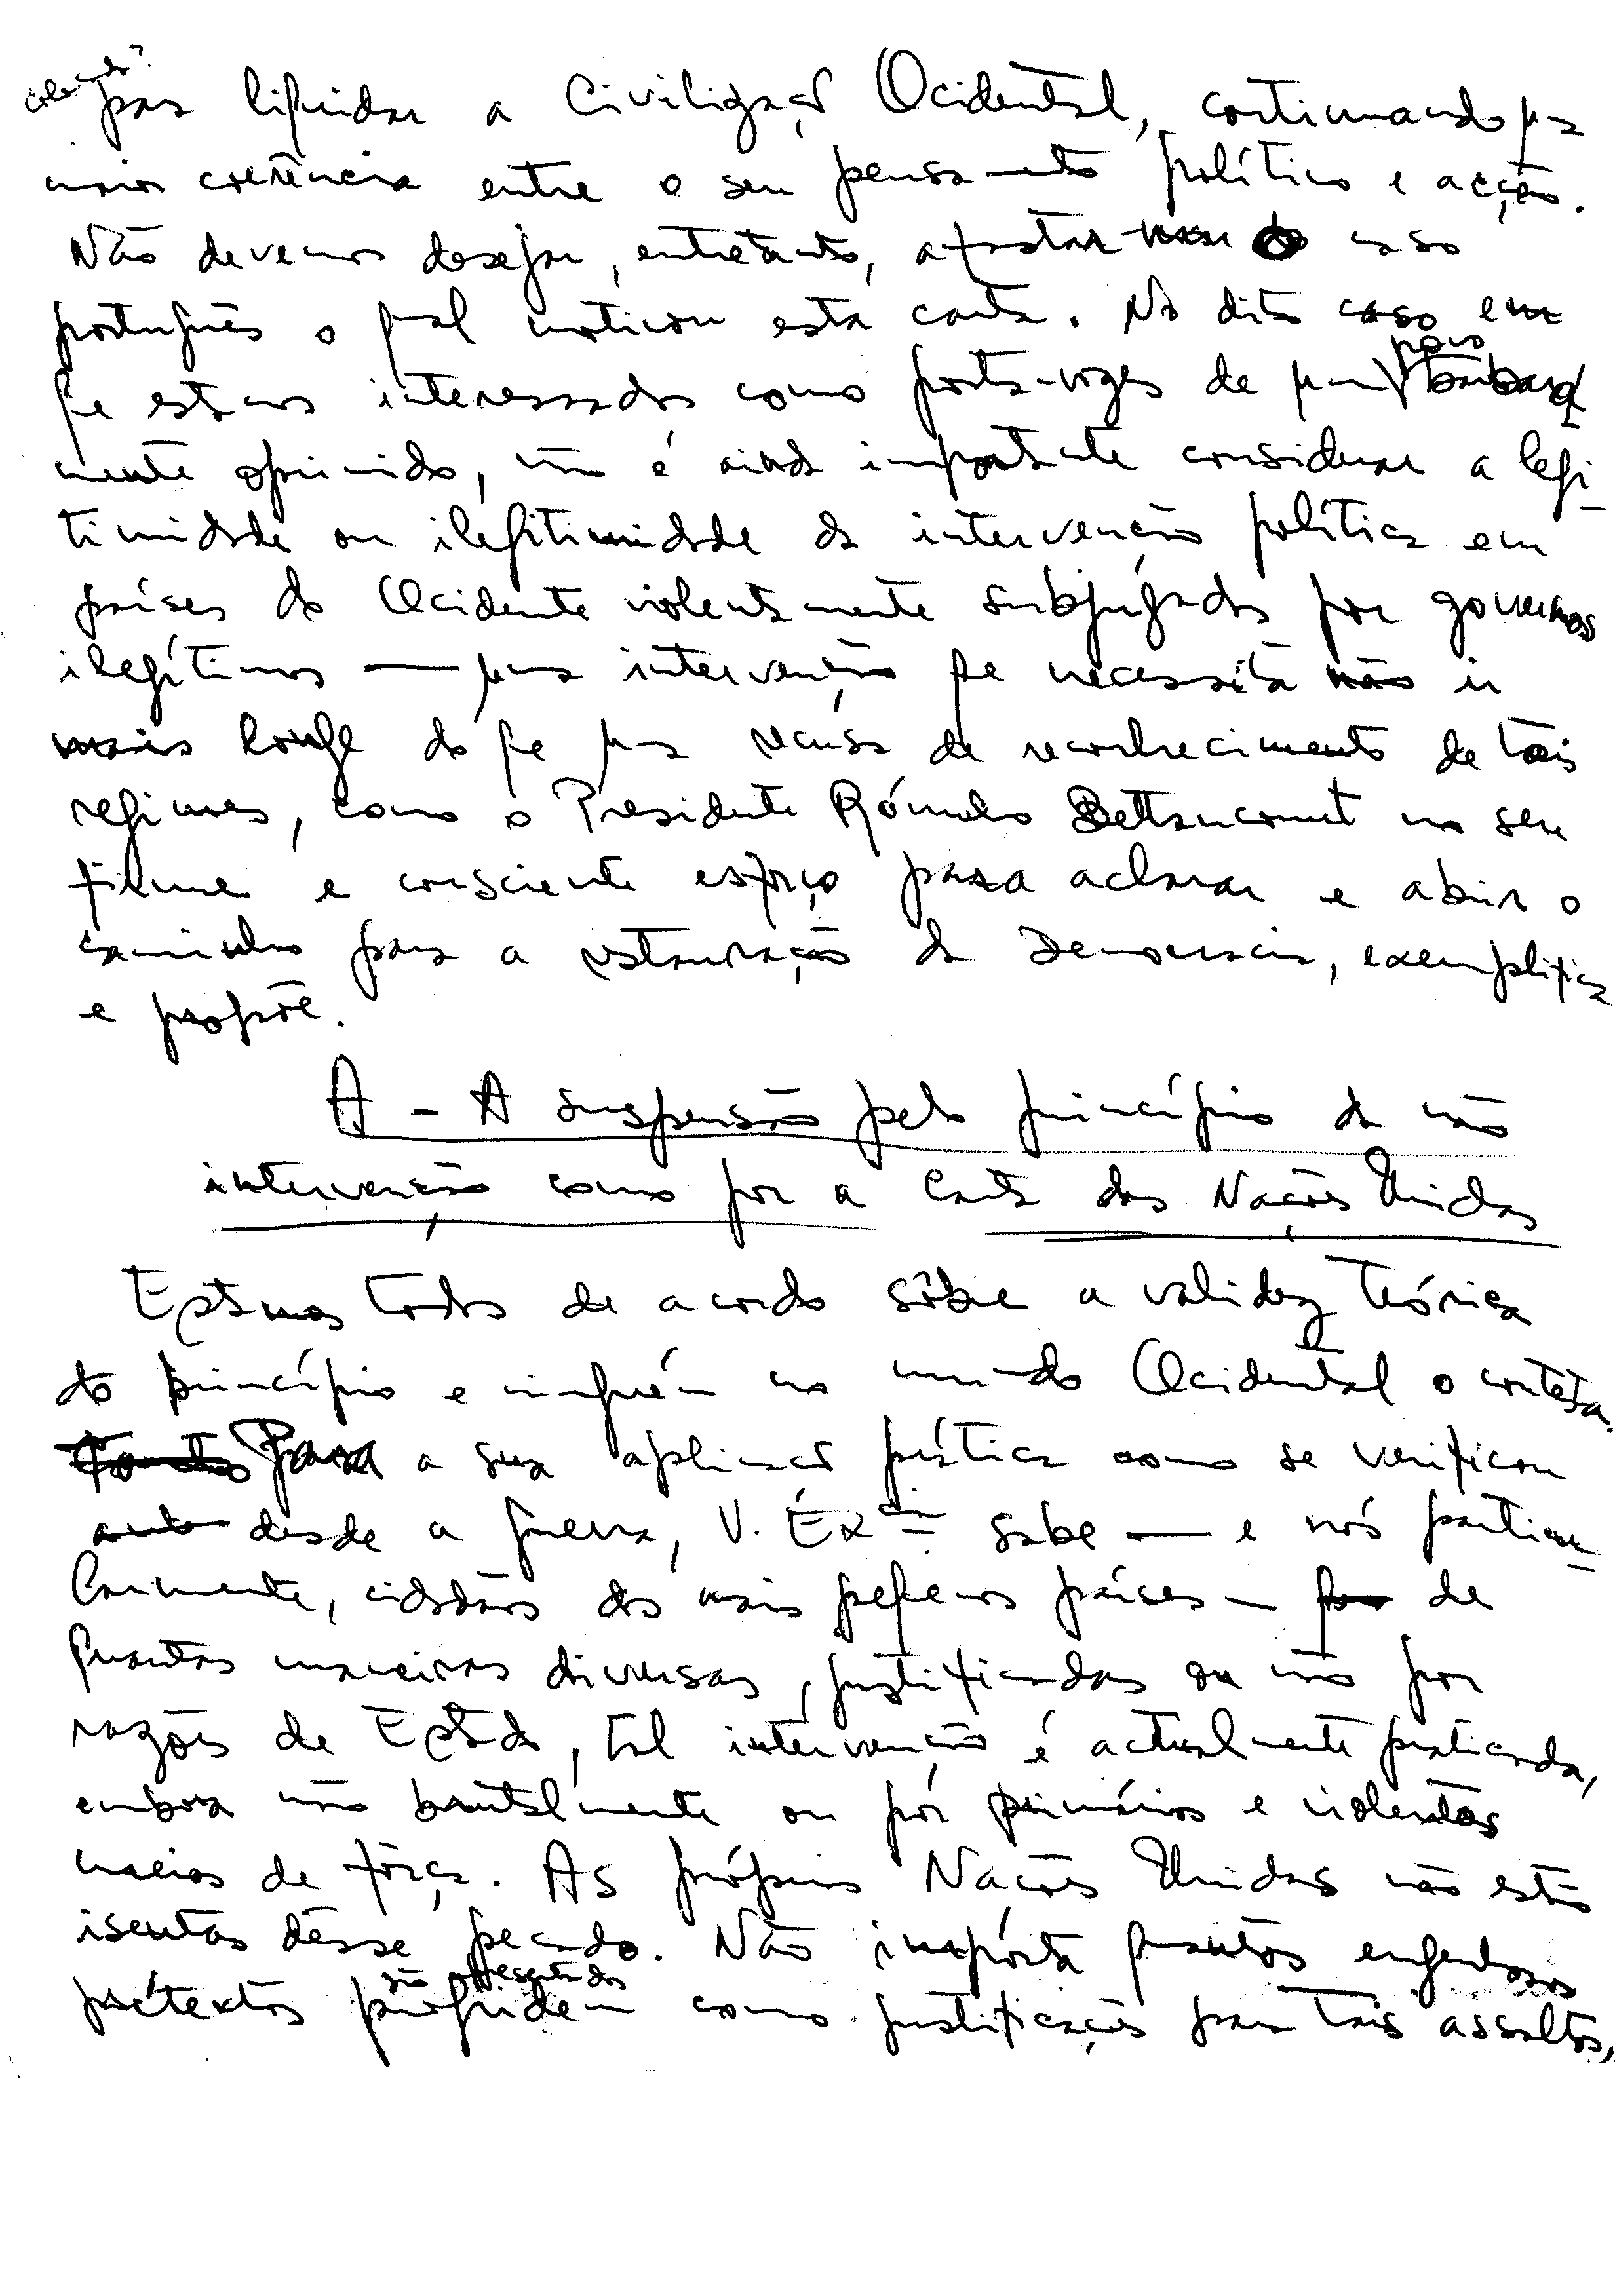 para liquidar a Civilização Ocidental, continuando uma
maior coerência entre o seu pensamento político e acção.
Não devemos desejar, entretanto, afastar do caso
português o qual motivou esta carta. No dito caso em
que estamos interessados como porta-vozes de um povo bàrbara
mente oprimido, não é ainda importante considerar a legi-
timidade ou ilegitimidade da intervenção política em
países do Ocidente violentamente subjugados por governos
ilegítimos — uma intervenção que necessita não ir
mais longe do que uma recusa de reconhecimento de tais
regimes, como o Presidente Rómulo Bettancourt no seu
firme e consciente esforço para aclarar e abrir o
caminho para a restauração da Democracia, exemplifica
e propõe.
A - A suspensão pelo princípio da não
intervenção como por a Carta das Nações Unidas
Estamos todos de acordo sôbre a validez teórica
do princípio e ninguém no mundo Ocidental o contesta.
Para a sua aplicação prática como se verificou
desde a guerra, V. Éxcia. sabe — e nós particu-
larmente, cidadãos dos mais pequenos países — de
quantas maneiras diversas, justificadas ou não por
razões de Estado, tal intervenção é actualmente praticada,
embora não brutalmente ou por primários e violentos
meios de fôrça. As próprias Nações Unidas não estão
isentas dêsse pecado. Não importa quantos engenhosos
são apresentados
pretextos como justificações para tais assaltos,